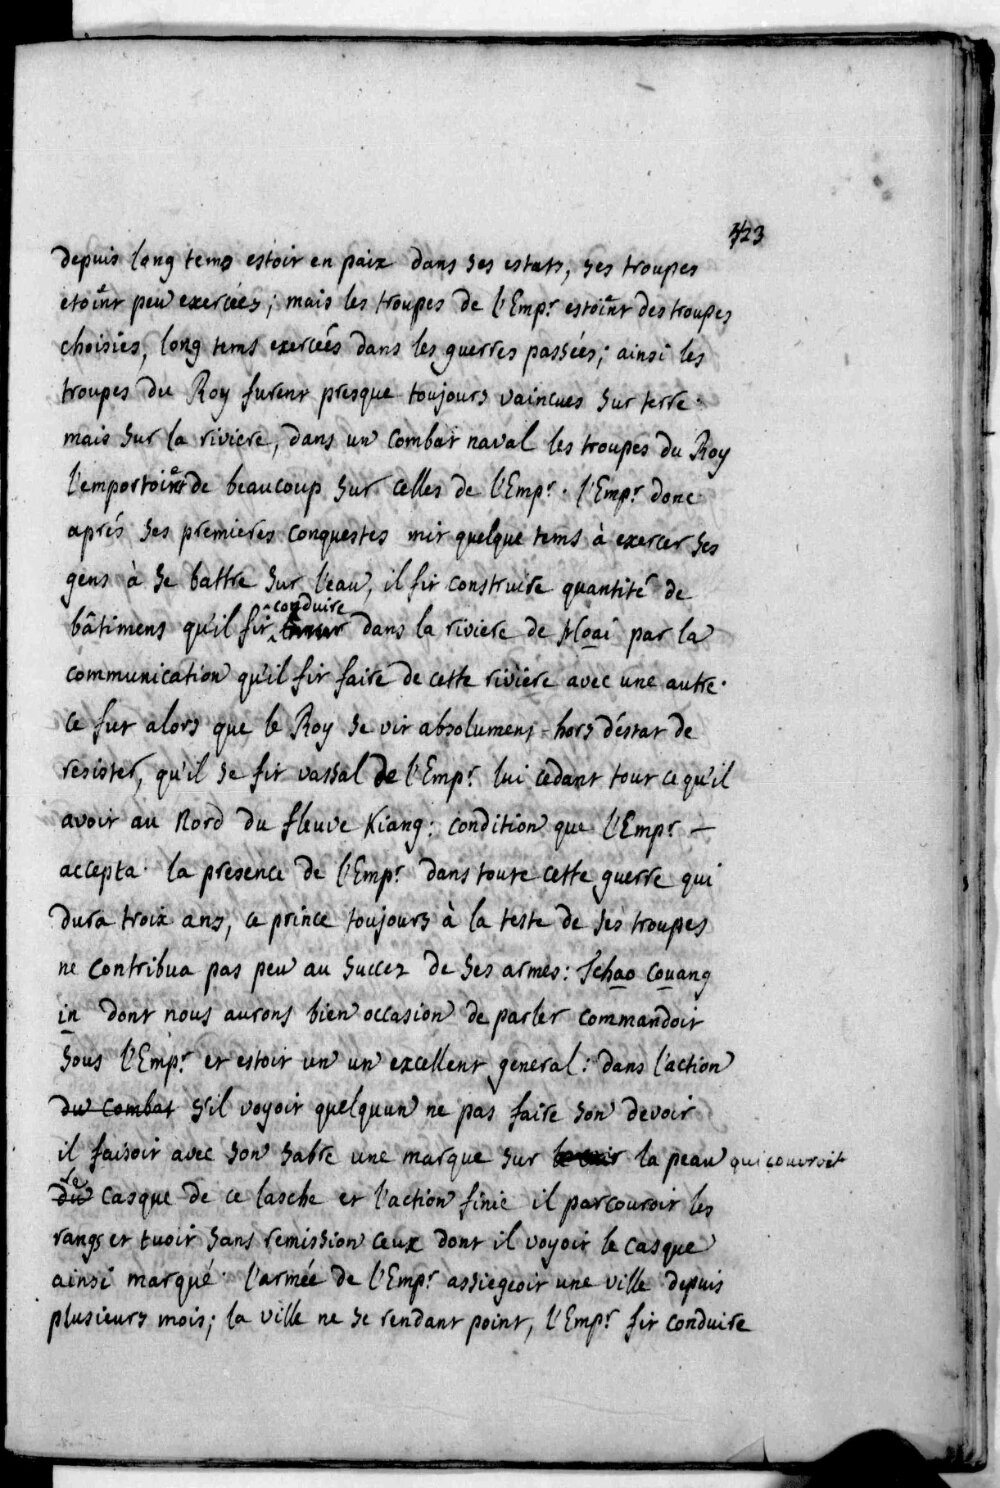 323
depuis long tems estoit en paix dans ses estats, ses troupes
etoient peu exercées; mais les troupes de l'Empr estoient des troupes
choisies, long tems exercées dans les guerres passées; ainsi les
troupes du Roy furent presque toujours vaincues sur terre.
mais sur la riviere, dans un combat naval les troupes du Roy
l'emportoient de beaucoup sur celles de l'Empr. l'Empr donc
aprés ses premieres conquestes mit quelque tems à exercer ses
gens à se battre sur l'eau, il fit construire quantité de
bâtimens qu'il fit conduire dans la riviere de Hoai par la
communication qu'il fit faire de cette riviere avec une autre.
ce fut alors que le Roy se vit absolument hors d'éstat de
resister, qu'il se fit vassal de l'Empr lui cedant tout ce qu'il
avoit au Nord du fleuve Kiang: condition que l'Empr
accepta. la presence de l'Empr dans toute cette guerre qui
dura troix ans, ce prince toujours à la teste de ses troupes
ne contribua pas peu au succez de ses armes: Tchao couang
in dont nous aurons bien occasion de parler commandoit
sous l'Empr et estoit un un excellent general: dans l'action
du combat s'il voyoit quelquun ne pas faire son devoir
il faisoit avec son sabre une marque sur la peau qui couvroit
le casque de ce lasche et l'action finie il parcouroit les
rangs et tuoit sans remission ceux dont il voyoit le casque
ainsi marqué. l'armée de l'Empr assiegeoit une ville depuis
plusieurs mois; la ville ne se rendant point, l'Empr fit conduire